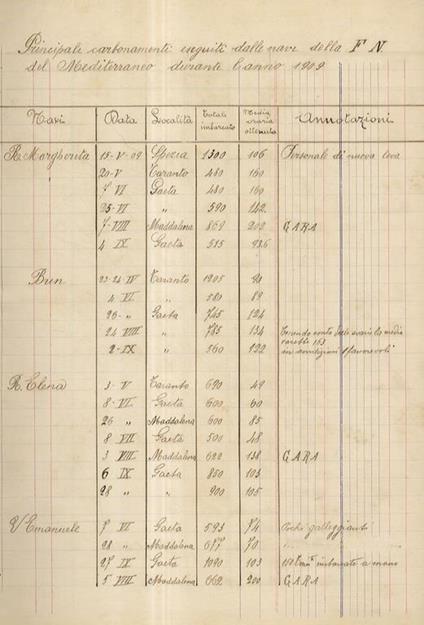 Principale carbonamenti eseguiti dalle navi della F. N.
del Mediterraneo durante l'anno 1909
Navi Data Località Totale imbarcato Media oraria ottenuta Annotazioni
R. Margherita 15-V-09 Spezia 1300 106 Personale di nuova leva
" 20-V Taranto 480 160
7 VI Gaeta 480 160
25-VI " 590 142
7-VIII Maddalena 869 202 GARA
4 IX Gaeta 515 93.6
Brin 23-24 IV Taranto 1205 90
4 VI " 580 89
26- " Gaeta 745 124
24 VIII " 785 134 Tenendo conto media
sarebbe 153
2-IX " 560 122 in condizioni sfavorevoli
R. Elena 3-V Taranto 690 49
8-VI Gaeta 600 60
26 " Maddalena 600 85
8 VII Gaeta 500 48
3 VIII Maddalena 622 138 GARA
6 IX Gaeta 850 103
28 " " 900 105
V Emanuele 7 VI Gaeta 593 74 galleggianti
28 " Maddalena 677 70 "
27 IX Gaeta 1090 103 imbarcate a mano
5 VIII Maddalena 662 200 GARA